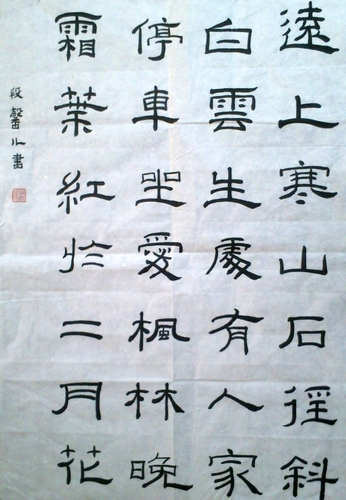 遠上寒山石徑斜
白雲生處有人家
停車坐愛楓林晚
霜葉紅於二月花
段馨儿書